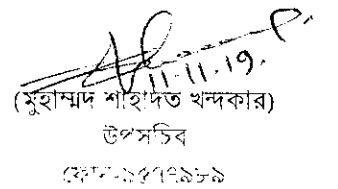 11.11.19.
(মুহাম্মদ শাহাদত খন্দকার)
উপসচিব
ফোন-৯৫৭৭৯৮৯